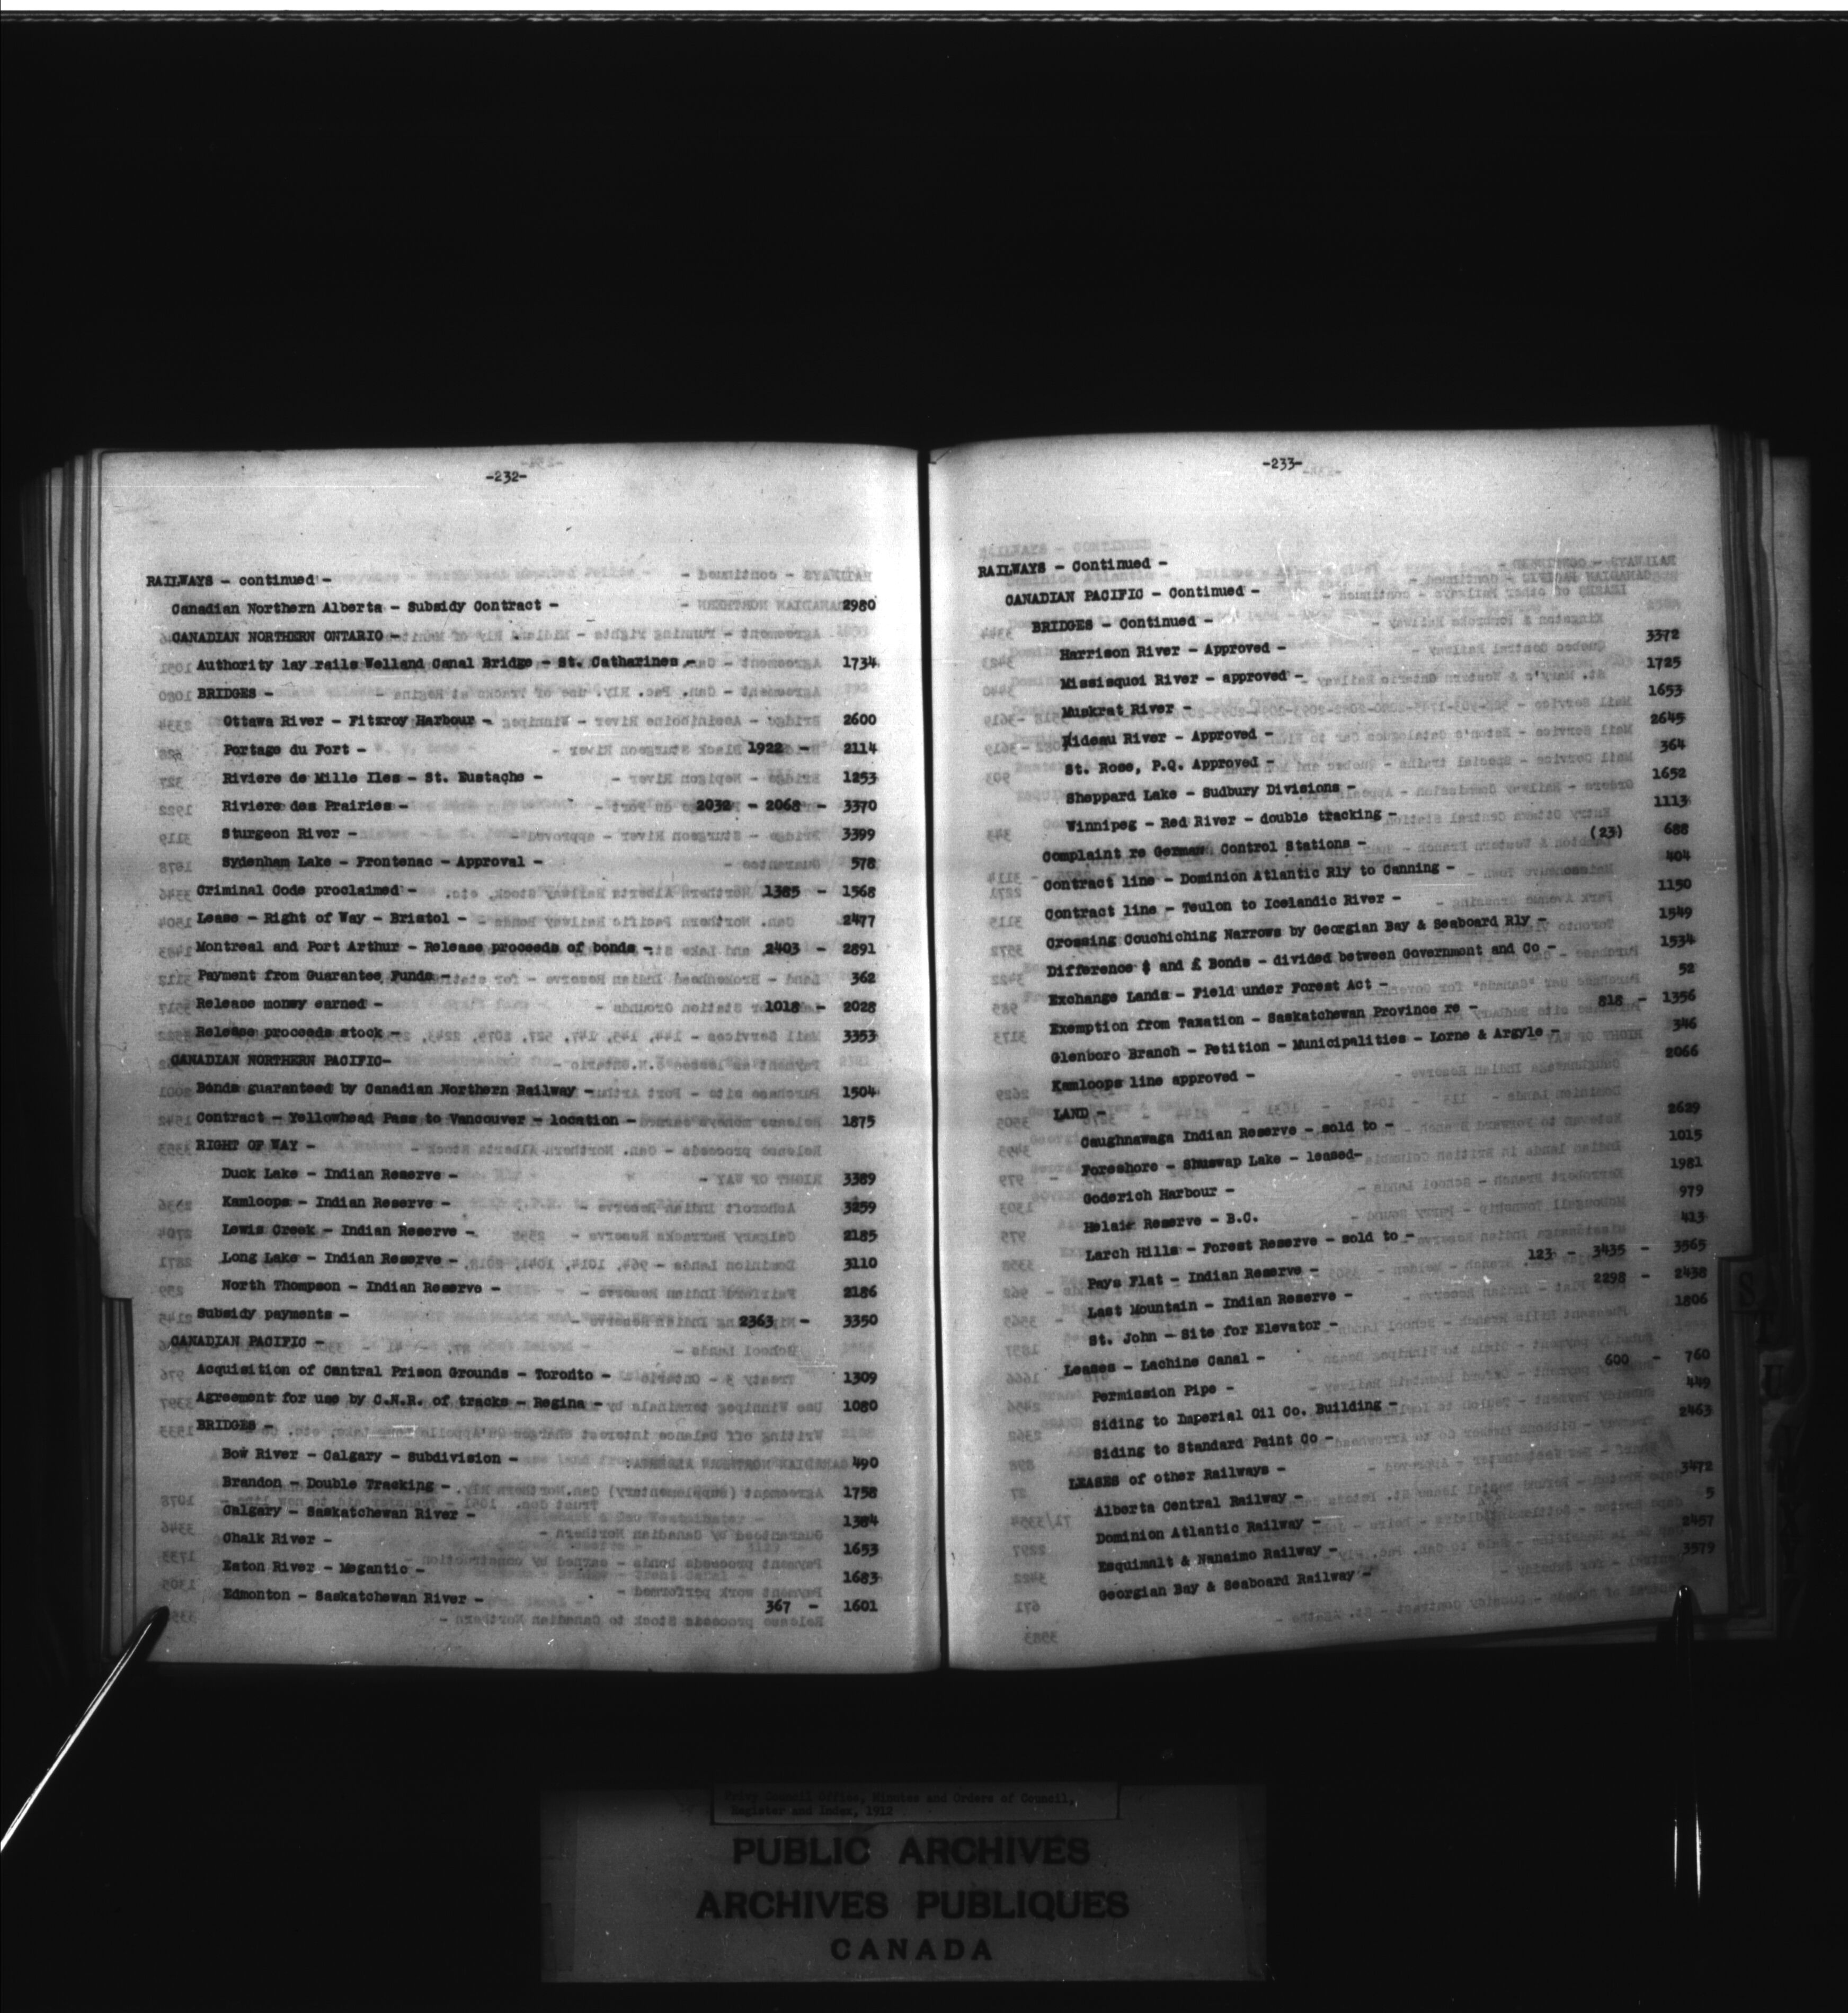 -232-
RAILWAYS - continued -
Canadian Northern Alberta - Subsidy Contract - 2980
CANADIAN NORTHERN ONTARIO -
Authority lay rails Welland Canal Bridge - St. Catharines - 1734
BRIDGES -
Ottawa River - Fitzroy Harbour - 2600
Portage du Fort - 1922 - 2114
Riviere de Mille Iles - St. Eustache - 1253
Riviere des Prairies - 2032 - 2068 - 3370
Sturgeon River - 3399
Sydenham Lake - Frontenac - Approval - 578
Criminal Code proclaimed - 1385 - 1568
Lease - Right of Way - Bristol - 2477
Montreal and Port Arthur - Release proceeds of bonds - 2403 - 2891
Payment from Guarantee Funds - 362
Release money earned - 1018 - 2028
Release proceeds stock - 3353
CANADIAN NORTHERN PACIFIC-
Bonds guaranteed by Canadian Northern Railway - 1504
Contract - Yellowhead Pass to Vancouver - location - 1875
RIGHT OF WAY -
Duck Lake - Indian Reserve - 3389
Kamloops - Indian Reserve - 3259
Lewis Creek - Indian Reserve - 2185
Long Lake - Indian Reserve - 3110
North Thompson - Indian Reserve - 2186
Subsidy payments - 2363 - 3350
CANADIAN PACIFIC -
Acquisition of Central Prison Grounds - Toronto - 1309
Agreement for use by C.N.R. of tracks - Regina - 1080
BRIDGES -
Bow River - Calgary - Subdivision - 490
Brandon - Double Tracking - 1758
Calgary - Saskatchewan River - 1384
Chalk River - 1653
Eaton River - Megantic - 1683
Edmonton - Saskatchewan River - 367 - 1601
-233-
RAILWAYS - Continued -
CANADIAN PACIFIC - Continued -
BRIDGES - Continued -
Harrison River - Approved - 3372
Missisquoi River - approved - 1725
Muskrat River - 1653
Rideau River - Approved - 2645
St. Rose, P.Q. Approved - 364
Sheppard Lake - Sudbury Divisions - 1652
Winnipeg - Red River - double tracking - 1113
Complaint re German Control Stations - (23) 688
Contract line - Dominion Atlantic Rly to Canning - 404
Contract line - Teulon to Icelandic River - 1150
Crossing Couchiching Narrows by Georgian Bay & Seaboard Rly - 1549
Difference $ and £ Bonds - divided between Government and Co - 1534
Exchange Lands - Field under Forest Act - 52
Exemption from Taxation - Saskatchewan Province re - 818 - 1356
Glenboro Branch - Petition - Municipalities - Lorne & Argyle - 346
Kamloops line approved - 2066
LAND -
Caughnawaga Indian Reserve - sold to - 2629
Foreshore - Shuswap Lake - leased- 1015
Goderich Harbour - 1981
Helair Reserve - B.C. 979
Larch Hills - Forest Reserve - sold to - 413
Pays Flat - Indian Reserve - 123 - 3435 - 3565
Last Mountain - Indian Reserve - 2298 - 2438
St. John - Site for Elevator - 1806
Leases - Lachine Canal -
Permission Pipe - 600 - 760
Siding to Imperial Oil Co. Building - 449
Siding to Standard Paint Co - 2463
LEASES of other Railways -
Alberta Central Railway - 3472
Dominion Atlantic Railway - 5
Esquimalt & Nanaimo Railway - 2457
Georgian Bay & Seaboard Railway - 3579
Privy Council Office, Minutes and Orders of Council,
Register and Index, 1912
PUBLIC ARCHIVES
ARCHIVES PUBLIQUES
CANADA